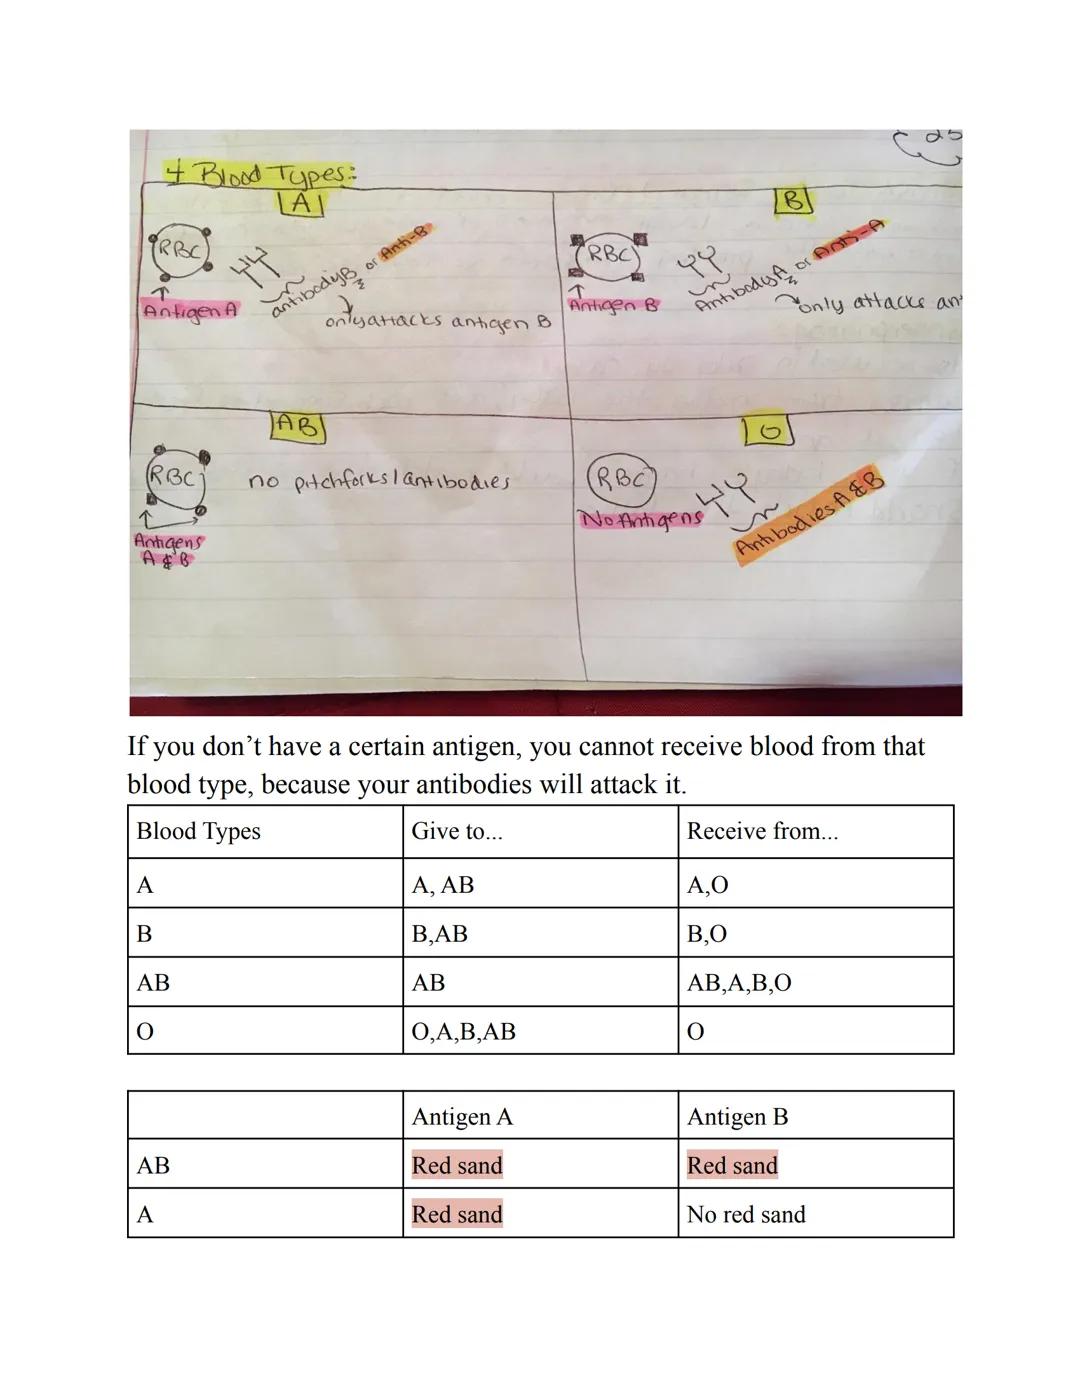 25
4 Blood Types:
A
RBC
Antigen A
antibody B or Anti-B
only attacks antigen B
B
RBC
Antigen B
Antibody A or Anti-A
only attacks an
AB
RBC
Antigens
A & B
no pitchforks/antibodies
O
RBC
No Antigens
Antibodies A & B
If you don’t have a certain antigen, you cannot receive blood from that
blood type, because your antibodies will attack it.
Blood Types Give to... Receive from...
A A, AB A,O
B B,AB B,O
AB AB AB,A,B,O
O O,A,B,AB O
Antigen A Antigen B
AB Red sand Red sand
A Red sand No red sand